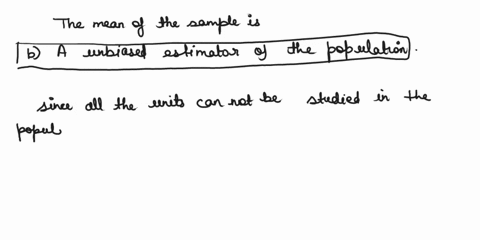 The mean of the sample is
b) A unbiased estimator of the population.
since all the units can not be studied in the
popul